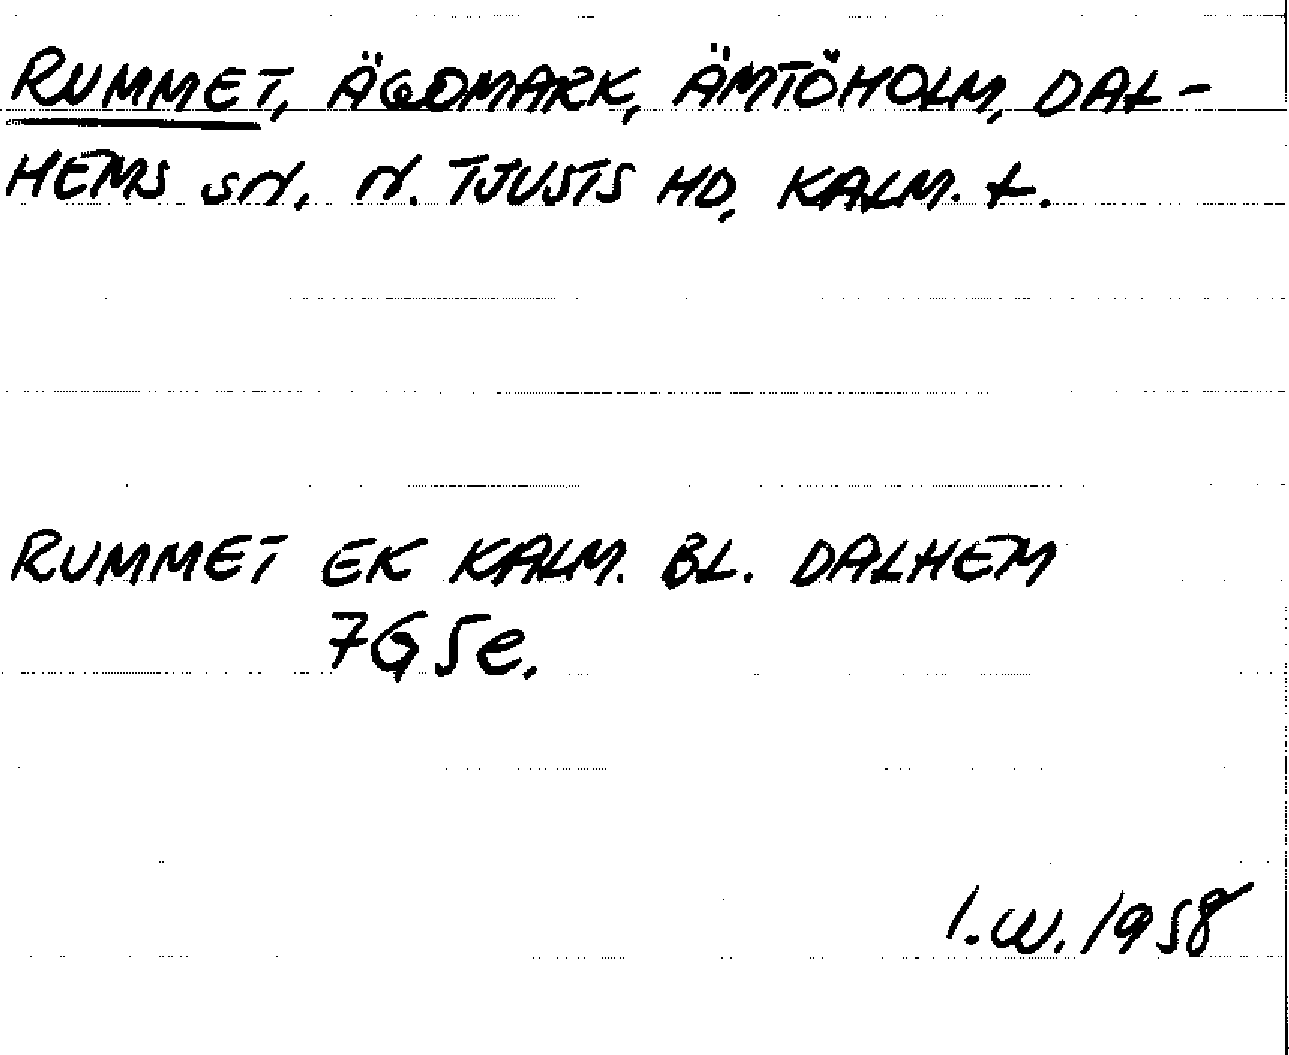 RUMMET, ÄGOMARK, ÄMTÖHOLM, DAL-
HEMS SN. N. TJUSTS HD, KALM. L.
RUMMET EK KALM. BL. DALHEM
7G5e.
I.W. 1958